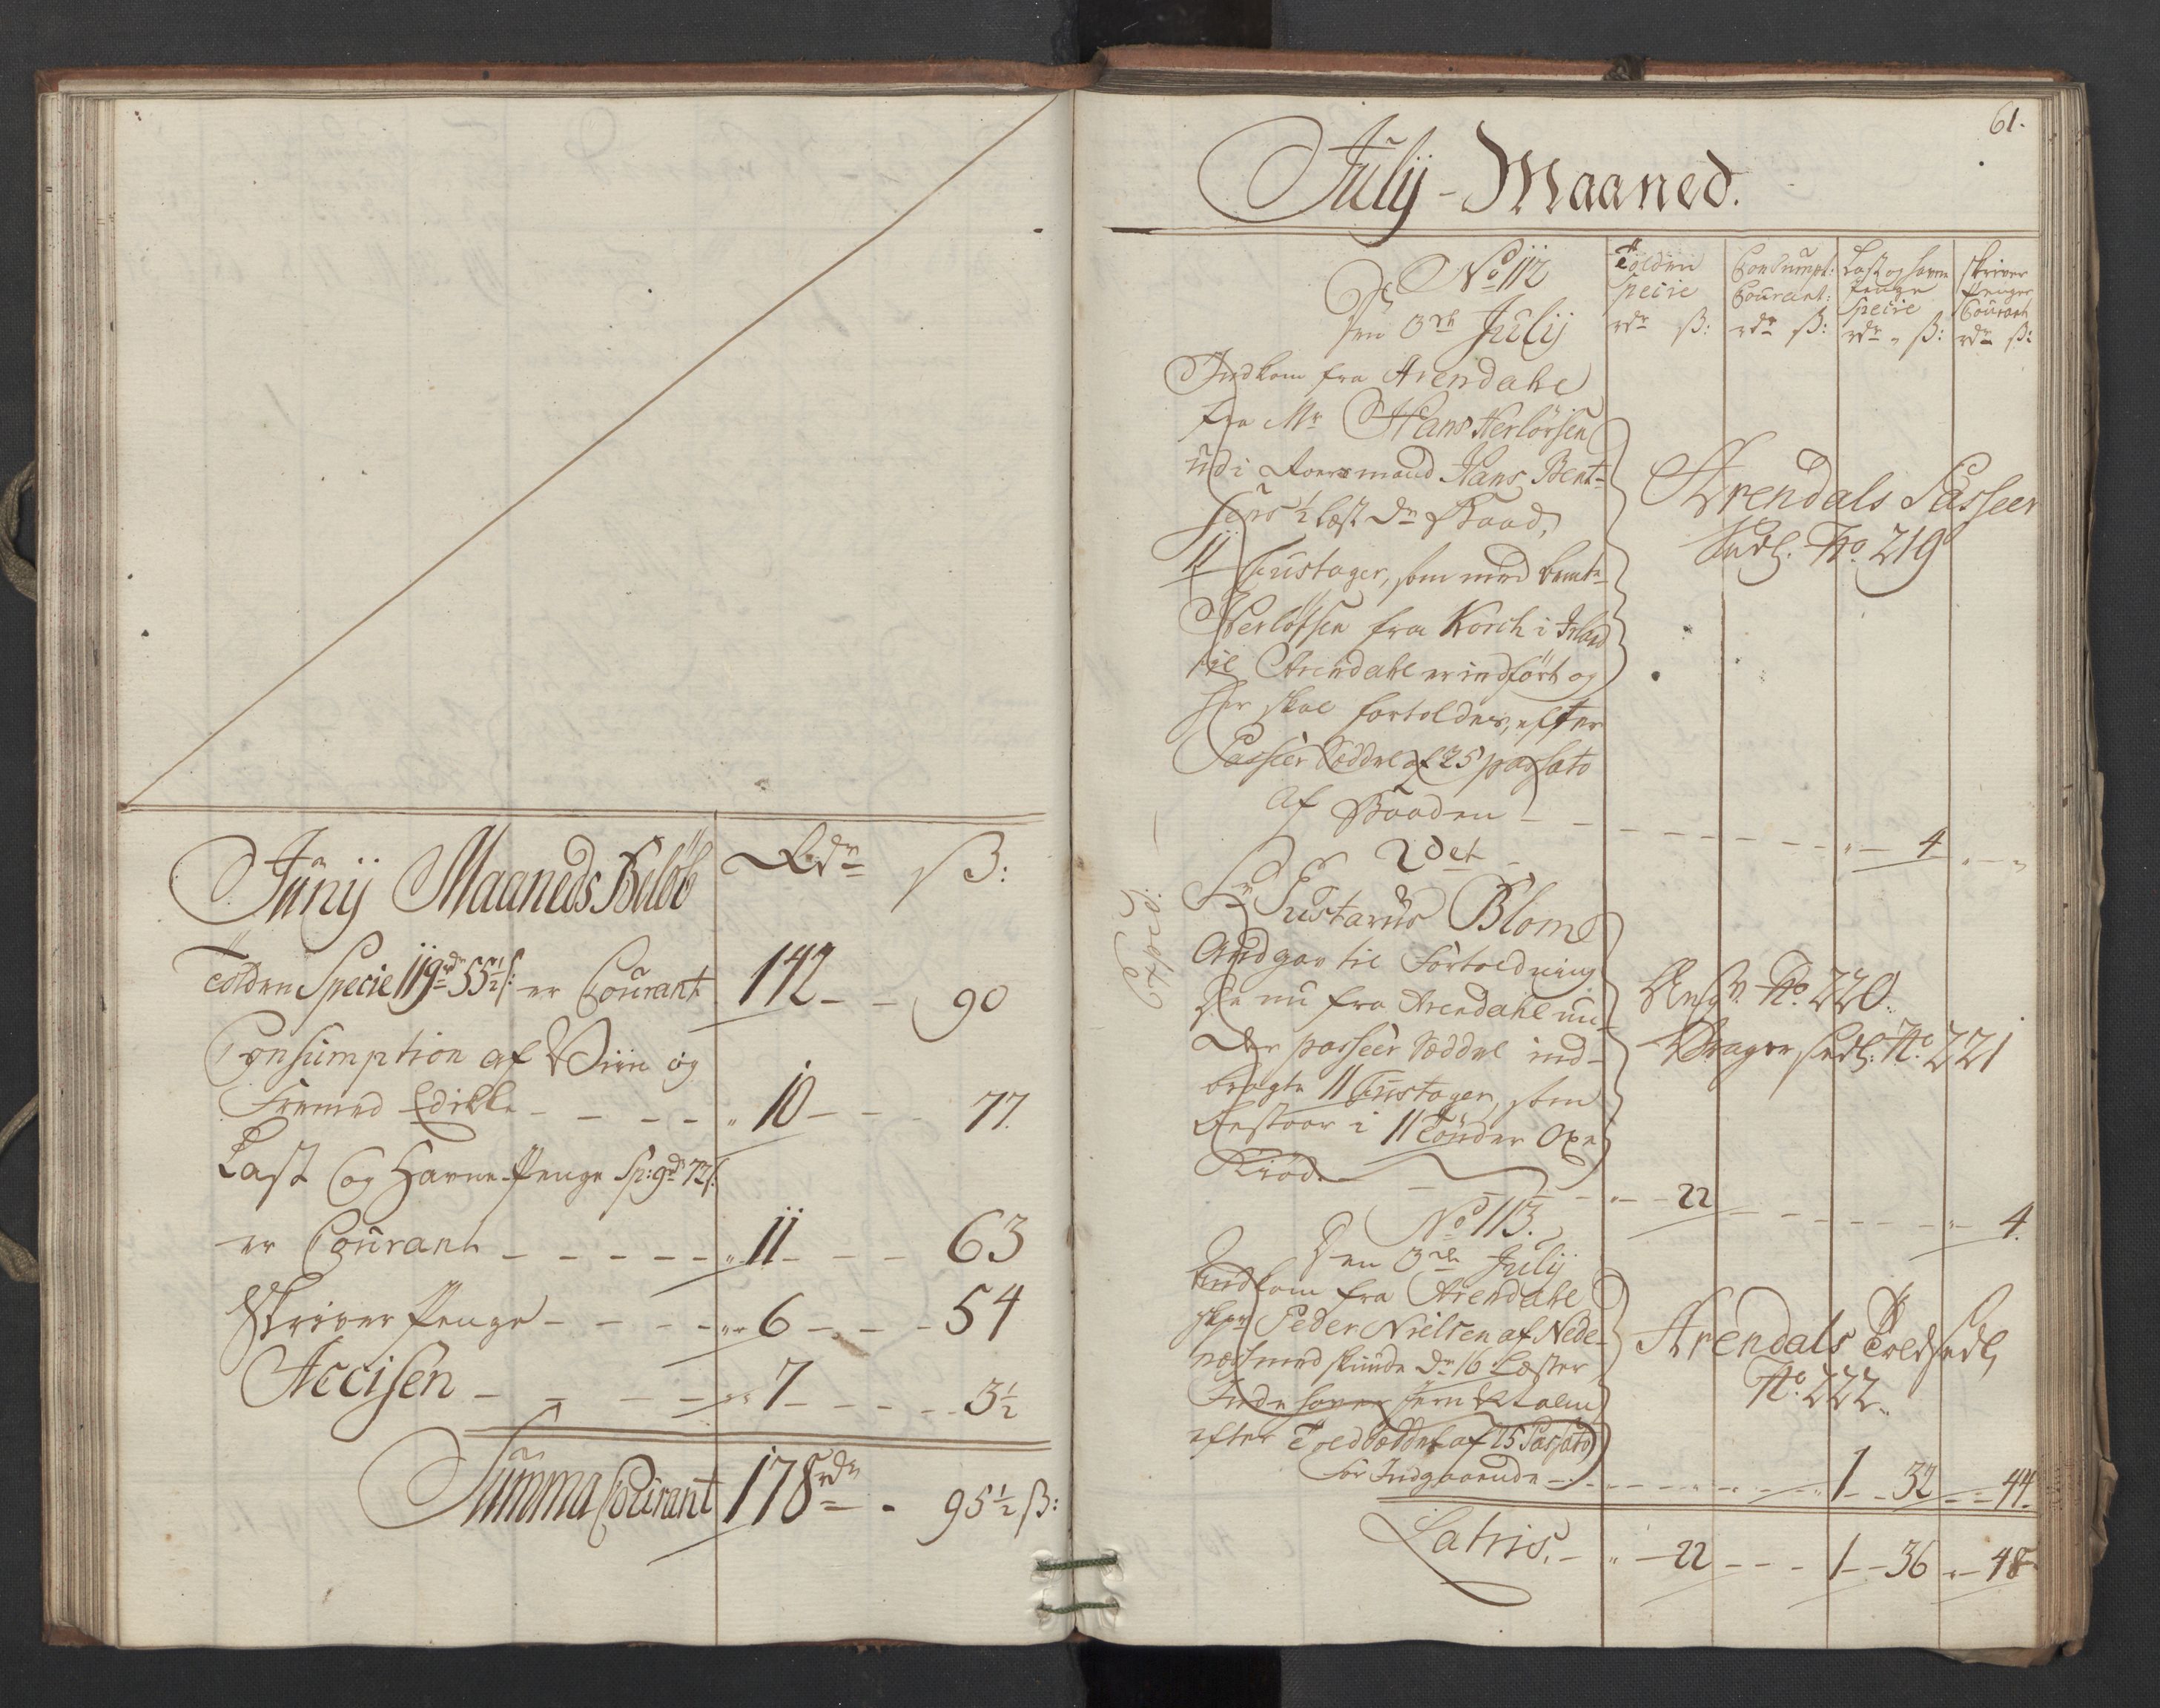 Junij Maaneds Beløb Rdr ß:
Tolden Specie 119rd 55½ß: er Courant 142 - - 90
Consumption af Viin og
Fremmed Edikke - - - - " 10 - - - 77.
Last og Havne-Penge Sp: 9rd 72ß:
er Courant - - - - - " 11 - - - 63
Skriver Penge - - - - " 6 - - - 54
Accisen - - - - - " 7 - - - - 3½
Summa Courant 178rdr - 95½ ß:
61.
Julij-Maaned.
No 112
Den 3de Julij
Tolden Specie rdr ß:
Consumpt: Courant: rdr ß:
Last og Havne Penge Specie rdr " ß:
Skriver Penger Courant rdr ß:
Indkom fra Arendahl
fra Mr Hans Herlofsen
udi Roersmand Hans Bent-
sens ½ læst dr Baad,
11 Fustager, som med bemte
Herlofsen fra Korch i Irland
til Arendahl er indført og
her skal fortoldes, efter
Passeer Seddel af 25 passato
Af Baaden - - - - - - - - " - 4 " - "
Arendals Passeer
Sedl. No. 219
2det
Sr Gustavus Blom
Angav til Fortoldning
De nu fra Arendahl un-
der passeer Seddel ind-
bragte 11 Fustager, som
bestaar i 11 Tønder Oxe
Kiød - - - " - 22 - - - - - - " - 4.
Angv. No. 220.
Wrager Sedl. No. 221
Exped:
No 113.
Den 3de Julij
Indkom fra Arendahl
skpr Peder Nielsen af Nede-
næs med skiude dr 16 Læster
efter Toldseddel af 25 Passato
For Indgaaende - - - - - - " 1 - 32 " - 44.
Arendals Toldsedl,
No. 222.
Latris. - " - 22 - - - 1 - 36 " - 48